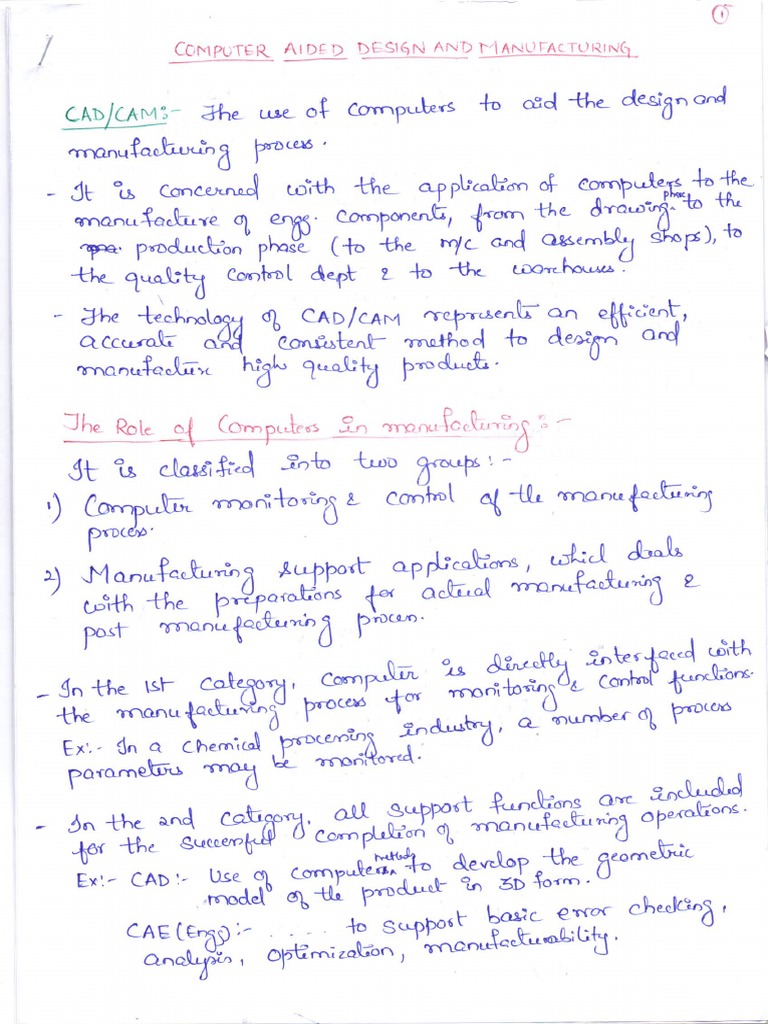 ①
COMPUTER AIDED DESIGN AND MANUFACTURING
CAD/CAM:- The use of computers to aid the design and
manufacturing process.
- It is concerned with the application of computers to the
manufacture of engg. components, from the drawing phase to the
production phase (to the m/c and assembly shops), to
the quality control dept & to the warehouses.
- The technology of CAD/CAM represents an efficient,
accurate and consistent method to design and
manufacture high quality products.
The Role of Computers in manufacturing:-
It is classified into two groups:-
1) Computer monitoring & control of the manufacturing
process.
2) Manufacturing support applications, which deals
with the preparations for actual manufacturing &
post manufacturing process.
- In the 1st category, computer is directly interfaced with
the manufacturing process for monitoring & control functions.
Ex:- In a chemical processing industry, a number of process
parameters may be monitored.
- In the 2nd category, all support functions are included
for the successful completion of manufacturing operations.
Ex:- CAD:- Use of computer methods to develop the geometric
model of the product in 3D form.
CAE(Engg):- ..... to support basic error checking,
analysis, optimization, manufacturability.